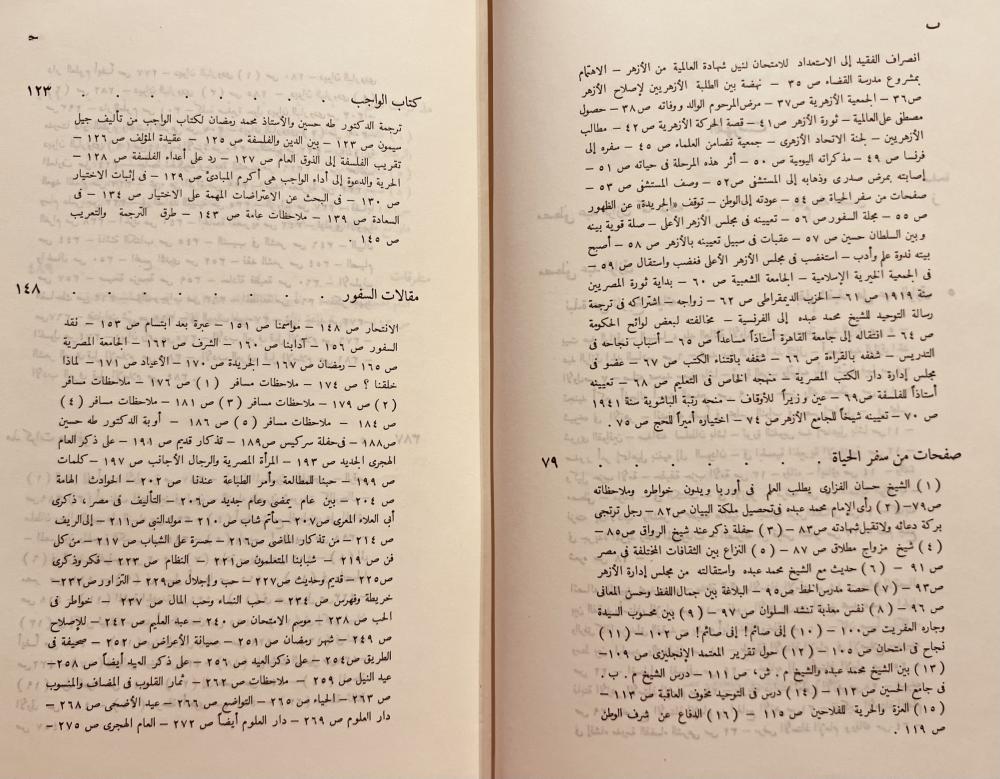 ب
انصراف الفقيد إلى الاستعداد للامتحان لنيل شهادة العالمية من الأزهر — الاهتمام
بمشروع مدرسة القضاء ص ٣٥ — نهضة بين الطلبة الأزهريين لإصلاح الأزهر
ص٣٦ — الجمعية الأزهرية ص٣٧ — مرض المرحوم الوالد ووفاته ص٣٨ — حصول
مصطفى على العالمية — ثورة الأزهر ص٤١ — قصة الحركة الأزهرية ص ٤٢ — مطالب
الأزهريين — لجنة الاتحاد الأزهرى — جمعية تضامن العلماء ص ٤٥ — سفره إلى
فرنسا ص ٤٩ — مذكراته اليومية ص ٥٠ — أثر هذه المرحلة فى حياته ص ٥١ —
إصابته بمرض صدرى وذهابه إلى المستشفى ص٥٢ — وصف المستشفى ص ٥٣ —
صفحات من سفر الحياة ص ٥٤ — عودته إلى الوطن — توقف «الجريدة» عن الظهور
ص ٥٥ — مجلة السفور ص ٥٦ — تعيينه فى مجلس الأزهر الأعلى — صلة قوية بينه
وبين السلطان حسين ص ٥٧ — عقبات فى سبيل تعيينه بالأزهر ص ٥٨ — أصبح
بيته ندوة علم وأدب — استغضب فى مجلس الأزهر الأعلى فغضب واستقال ص ٥٩ —
فى الجمعية الخيرية الإسلامية — الجامعة الشعبية ص ٦٠ — بداية ثورة المصريين
سنة ١٩١٩ ص ٦١ — الحزب الديمقراطى ص ٦٢ — زواجه — اشتراكه فى ترجمة
رسالة التوحيد للشيخ محمد عبده إلى الفرنسية — مخالفته لبعض لوائح الحكومة
ص ٦٤ — انتقاله إلى جامعة القاهرة أستاذاً مساعداً ص ٦٥ — أسباب نجاحه فى
التدريس — شغفه بالقراءة ص ٦٦ — شغفه باقتناء الكتب ص ٦٧ — عضو فى
مجلس إدارة دار الكتب المصرية — منهجه الخاص فى التعليم ص ٦٨ — تعيينه
أستاذاً للفلسفة ص٦٩ — عين وزيراً للأوقاف — منحه رتبة الباشوية سنة ١٩٤١
ص ٧٠ — تعيينه شيخاً للجامع الأزهر ص ٧٤ — اختياره أميراً للحج ص ٧٥ .
صفحات من سفر الحياة . . . . . . ٧٩
(١) الشيخ حسان الفزارى يطلب العلم فى أوربا ويدون خواطره وملاحظاته
ص٧٩ — (٢) رأى الإمام محمد عبده فى تحصيل ملكة البيان ص٨٢ — رجل ترتجى
بركة دعائه ولا تقبل شهادته ص٨٣ — (٣) حفلة ذكر عند شيخ الرواق ص٨٥ —
(٤) شيخ مزواج مطلاق ص ٨٧ — (٥) النزاع بين الثقافات المختلفة فى مصر
ص ٩١ — (٦) حديث مع الشيخ محمد عبده واستقالته من مجلس إدارة الأزهر
ص٩٣ — (٧) حصة مدرس الخط ص٩٥ — البلاغة بين جمال اللفظ وحسن المعانى
ص ٩٦ — (٨) نفس معذبة تنشد السلوان ص ٩٧ — (٩) بين محسوب السيدة
وجاره العفريت ص١٠٠ — (١٠) إنى صائم! إنى صائم! ص ١٠٢ — (١١)
نجاح فى امتحان ص ١٠٥ — (١٢) حول تقرير المعتمد الإنجليزى ص ١٠٩ —
(١٣) بين الشيخ محمد عبده والشيخ م . ش . ص ١١١ — درس الشيخ م . ب .
فى جامع الحسين ص ١١٢ — (١٤) درس فى التوحيد مخوف العاقبة ص ١١٣ —
(١٥) العزة والحرية للفلاحين ص ١١٥ — (١٦) الدفاع عن شرف الوطن
ص ١١٩ .
ج
كتاب الواجب . . . . . . . ١٢٣
ترجمة الدكتور طه حسين والأستاذ محمد رمضان لكتاب الواجب من تأليف جيل
سيمون ص ١٢٣ — بين الدين والفلسفة ص ١٢٥ — عقيدة المؤلف ص ١٢٦ —
تقريب الفلسفة إلى الذوق العام ص ١٢٧ — رد على أعداء الفلسفة ص ١٢٨ —
الحرية والدعوة إلى أداء الواجب هى أكرم المبادئ ص ١٢٩ — فى إثبات الاختيار
ص ١٣٠ — فى البحث عن الاعتراضات المهمة على الاختيار ص ١٣٤ — فى
السعادة ص ١٣٩ — ملاحظات عامة ص ١٤٣ — طرق الترجمة والتعريب
ص ١٤٥ .
مقالات السفور . . . . . . . ١٤٨
الانتحار ص ١٤٨ — مواسمنا ص ١٥١ — عبرة بعد ابتسام ص ١٥٣ — نقد
السفور ص ١٥٦ — آدابنا ص ١٦٠ — الشرف ص ١٦٢ — الجامعة المصرية
ص ١٦٥ — رمضان ص ١٦٧ — الجريدة ص ١٧٠ — الأعياد ص ١٧١ — لماذا
خلقنا ؟ ص ١٧٤ — ملاحظات مسافر (١) ص ١٧٦ — ملاحظات مسافر
(٢) ص ١٧٩ — ملاحظات مسافر (٣) ص ١٨١ — ملاحظات مسافر (٤)
ص ١٨٤ — ملاحظات مسافر (٥) ص ١٨٦ — أوبة الدكتور طه حسين
ص١٨٨ — فى حفلة سركيس ص١٨٩ — تذكار قديم ص ١٩١ — على ذكر العام
الهجرى الجديد ص ١٩٣ — المرأة المصرية والرجال الأجانب ص ١٩٧ — كلمات
ص ١٩٩ — حبنا للمطالعة وأمر الطباعة عندنا ص ٢٠٢ — الحوادث الهامة
ص ٢٠٤ — بين عام يمضى وعام جديد ص٢٠٦ — التأليف فى مصر، ذكرى
أبى العلاء المعرى ص٢٠٧ — مأتم شاب ص ٢١٠ — مولد النبى ص٢١١ — إلى الريف
ص ٢١٤ — من تذكار الماضى ص٢١٦ — حسرة على الشباب ص ٢١٧ — من كل
فن ص ٢١٩ — شبابنا المتعلمون ص٢٢١ — النظام ص ٢٢٣ — فكر وذكرى
ص٢٢٥ — قديم وحديث ص٢٢٧ — حب وإجلال ص٢٢٩ — التزاور ص٢٣٢ —
خريطة وفهرس ص ٢٣٤ — حب النساء وحب المال ص ٢٣٧ — خواطر فى
الحب ص ٢٣٨ — موسم الامتحان ص ٢٤٠ — عبد العليم ص ٢٤٢ — للإصلاح
ص ٢٤٩ — شهر رمضان ص ٢٥١ — صيانة الأعراض ص ٢٥٢ — صحيفة فى
الطريق ص٢٥٤ — على ذكر العيد ص ٢٥٦ — على ذكر العيد أيضاً ص ٢٥٨ —
عيد النيل ص ٢٥٩ — ملاحظات ص ٢٦٢ — ثمار القلوب فى المضاف والمنسوب
ص ٢٦٣ — الحياء ص ٢٦٥ — التواضع ص ٢٦٦ — عيد الأضحى ص ٢٦٨ —
دار العلوم ص ٢٦٩ — دار العلوم أيضاً ص ٢٧٢ — العام الهجرى ص ٢٧٥ —